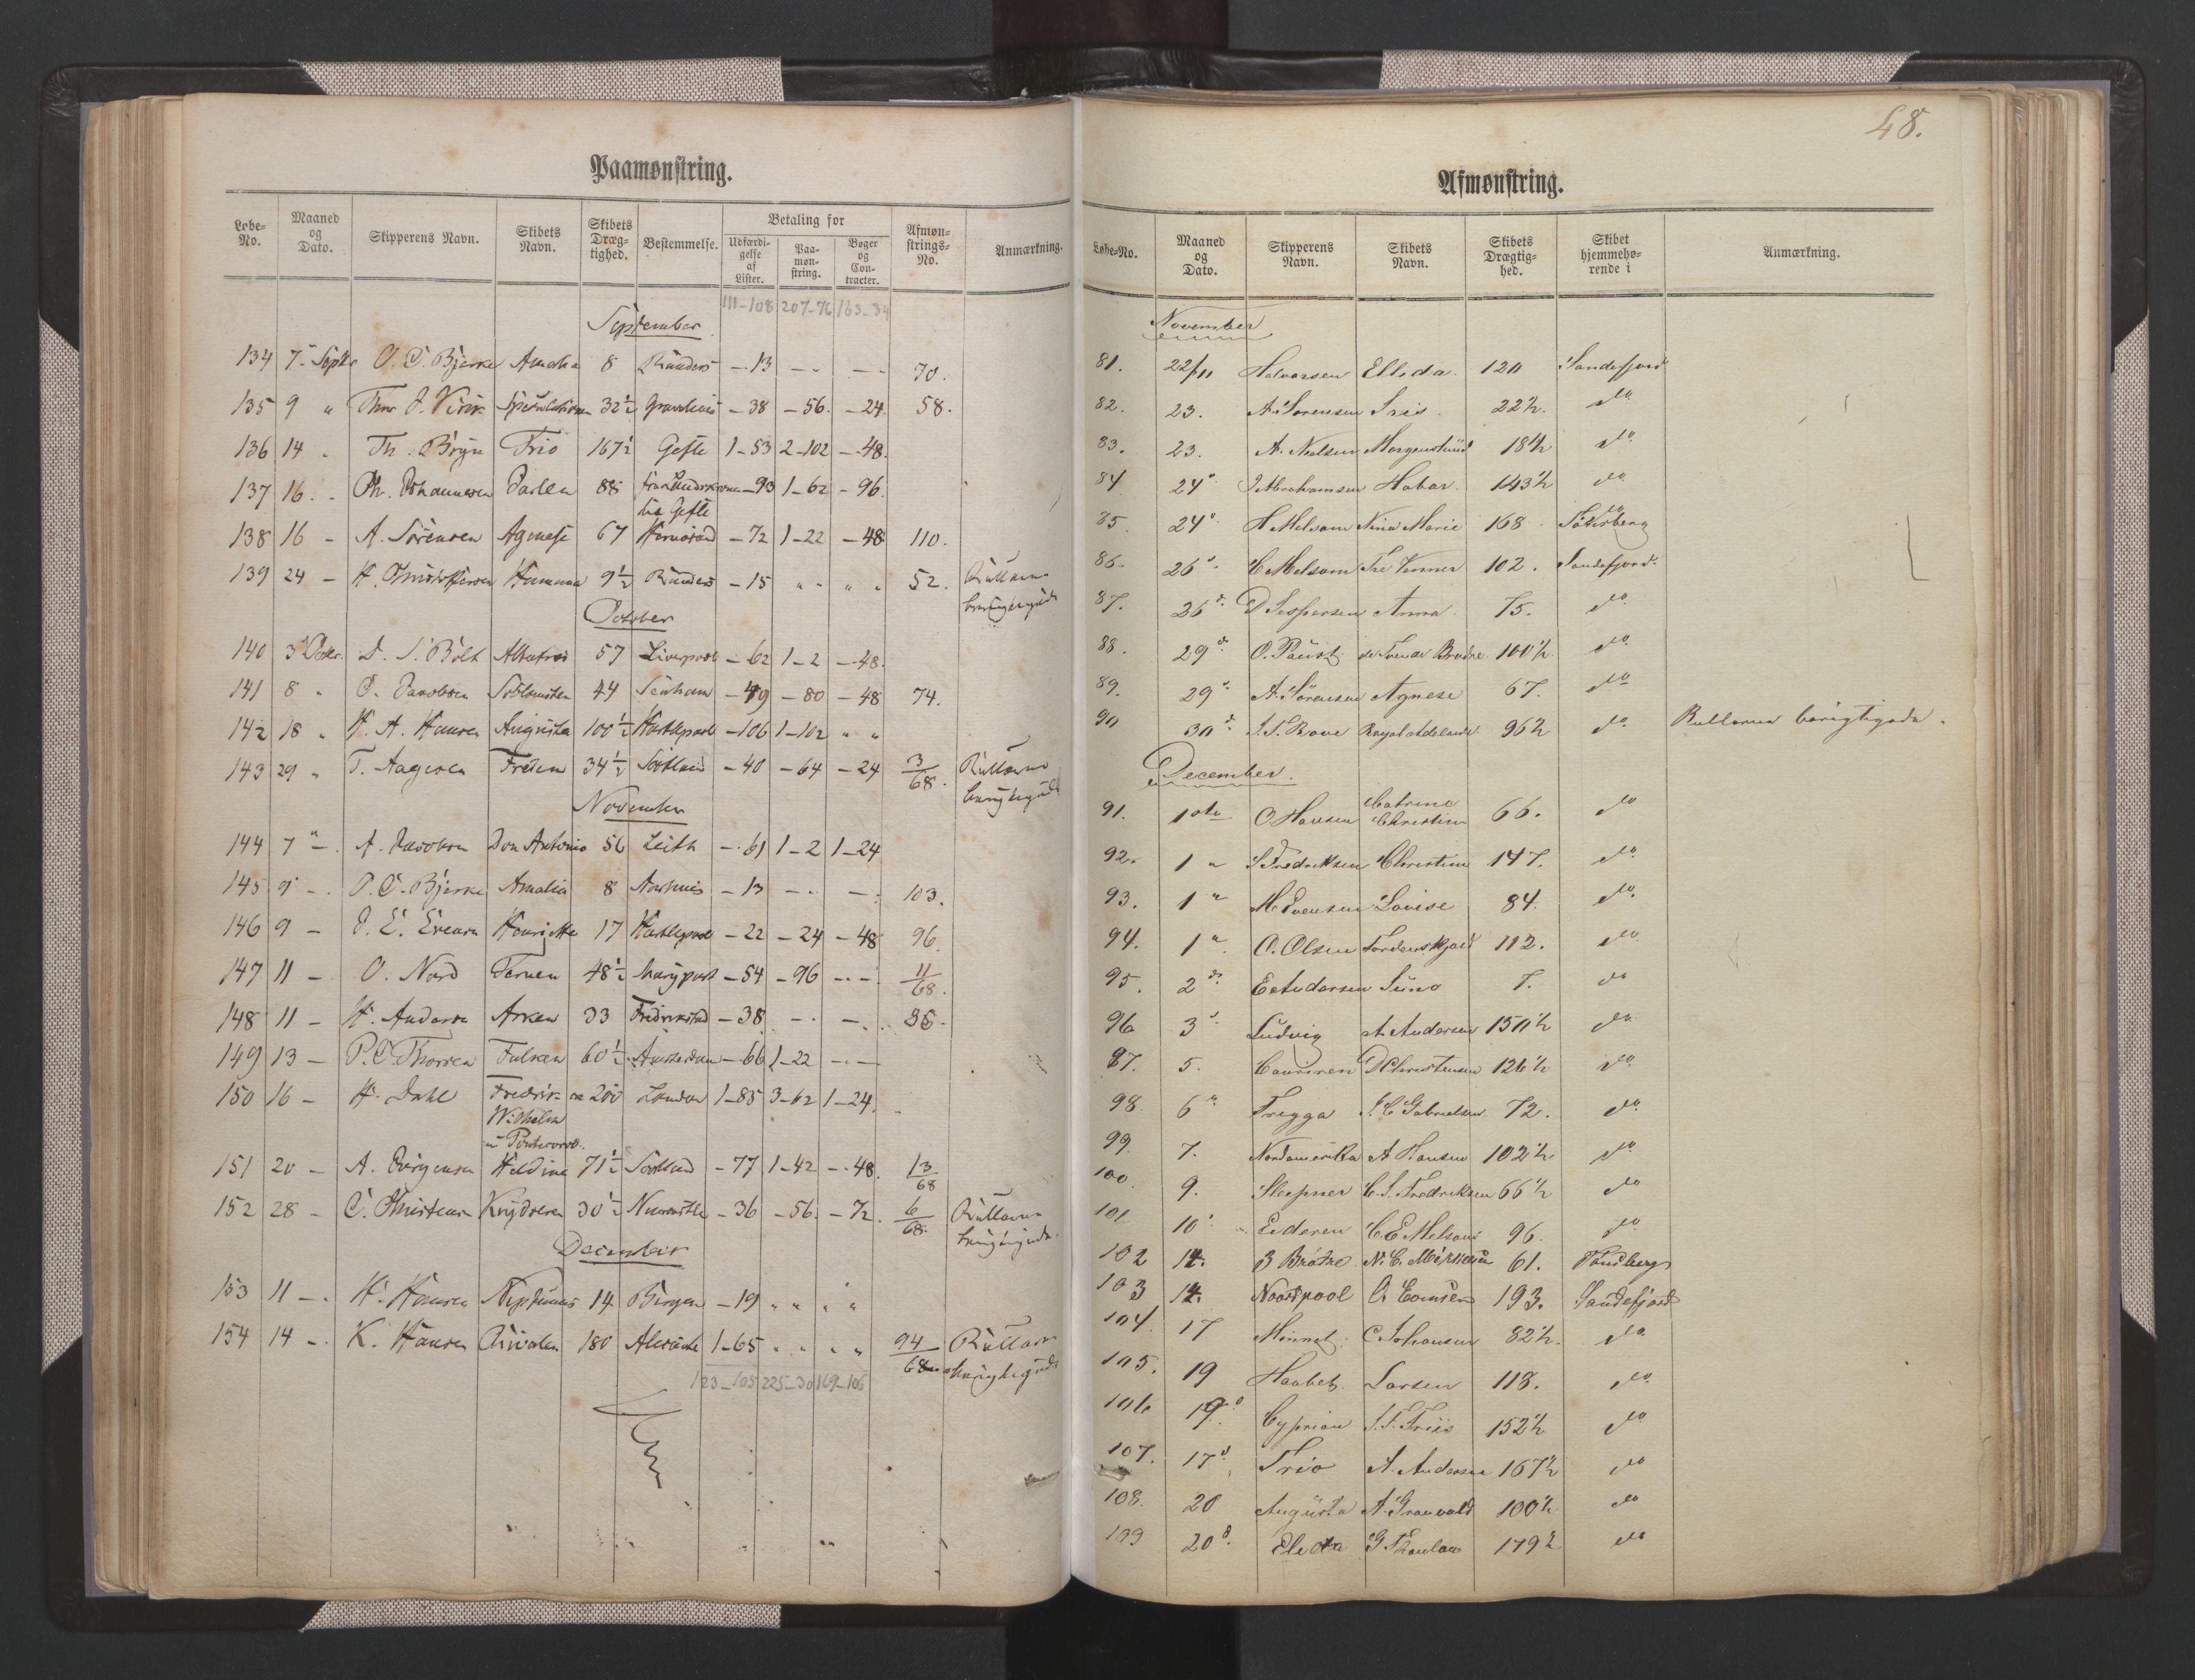 Paamønstring.
Løbe-No. Maaned og Dato. Skipperens Navn. Skibets Navn. Skibets Dræg-tighed. Bestemmelse. Betaling for Udfærdi-gelse af Lister. Paa-møn-string. Bøger og Con-tracter. Afmøn-strings-No. Anmærkning.
111-108 207-76 163-34
September
134 7 Septr O. C. Bjerke Amalia 8 Randers -13 - - 70.
135 9 " Thor J. Virik Speculation 32½ -38 -56. -24. 58.
136 14 " Th. Bryn Trio 167½ Gefle 1-53 2-102 -48.
137 16 " Ph. Johannesen 88 -93 1-62 -96.
til Gefle
138 16 - A. Sørensen Agnese 67 Hernøsand -72 1-22 -48 110.
139 24 - H. Christoffersen Hamma 9½ Randers -15 " " " " 52. Rullerne
berigtigede
October
140 3 Octbr. D. S. Bolt Albatros 57 Liverpool -62 1-2 -48.
141 8 " C. Jacobsen 44 Seaham -49 -80 -48 74.
142 18 " H. A. Hansen Augusta 100½ Hartlepool -106 1-102 " "
143 29 " T. Aagesen Freden 34½ Skotland -40 -64 -24 3/68. Rullerne
berigtigede
November
144 7 " - A. Jacobsen Don Antonio 56 Leith -61 1-2 1-24
145 9 - O. C. Bjerke Amalia 8 Aarhuus -13 - - 103.
146 9 - Henriette 17 Hartlepool -22 -24 -48 96.
147 11 - O. Nord Ternen 48½ Maryport -54 -96 - - 11/68.
148 11 - H. Andersen Ørken 33 Fredrikstad -38 - - 86.
149 13 - P. C. Thorsen Falken 60½ Amsterdam -66 1-22 - -
150 16 - H. Dahl Fredrik 200 London 1-85 3-62 1-24.
Wilhelm
151 20 - A. Jørgensen Heldine 71½ Skotland -77 1-42 -48. 13/68
152 28 - C. Christensen Krydseren 30½ Newcastle -36 -56. -72. 6/68. Rullerne
berigtigede
December
153 11 - H. Hansen Neptunus 14 Bergen -19 " " " "
154 14 - K. Hansen Rivalen 180 Alicante 1-65 " " " " 94/68 Rullerne
berigtigede
123-105 225-30 169-106
48.
Afmønstring.
Løbe-No. Maaned og Dato. Skipperens Navn. Skibets Navn. Skibets Drægtig-hed. Skibet hjemmehø-rende i Anmærkning.
November
81. 22/11 Halvorsen Ellida 120 Sandefjord
82. 23. A. Sørensen Iris 22½. do
83. 23. A. Nielsen Morgenstund 18½ do
84 24 J. Abrahamsen Habor 143½ do
85. 24 H Melsom Nina Marie 168
86. 26 C Melsom Tre Venner 102. Sandefjord
87. 26 D Jespersen Anna 75. do
88. 29 O. Paust de Tvende Brødre 100½ do
89. 29 A. Sørensen Agnese 67. do
90 30 J. S. Rove Royal Adelaide 96½ do Rullerne berigtigede.
December.
91. 1ste O Hansen Catrine Christine 66. do
92. 1 " S Fredriksen Christine 147. do
93. 1 " M Evensen Lovise 84. do
94. 1 " O. Olsen Tordenskjold 112. do
95. 2 E Andersen Juno 7. do
96 3 Ludvig A. Andersen 150½ do
97. 5. D Christensen 126½ do
98. 6 Frigga J. C Gabrielsen 72. do
99. 7. Nordamerika A Hansen 102½ do
100. 9. Sleipner C. S. Fredriksen 66½ do
101 10 Ederen C E Melsom 96. do
102 14. 3 Brødre N. C. Mikkelsen 61. Tønsberg
103 14. Nordpool O. Evensen 193. Sandefjord
104. 17 Minnet C. Johansen 82½. do
105. 19 Haabet Larsen 118. do
106 19. Cyprian J. F. Friis 152½ do
107. 17 Trio A. Andersen 167½ do
108. 20 Augusta A. Grønvold 100½ do
109 20 Electa G Thaulow 179½ do